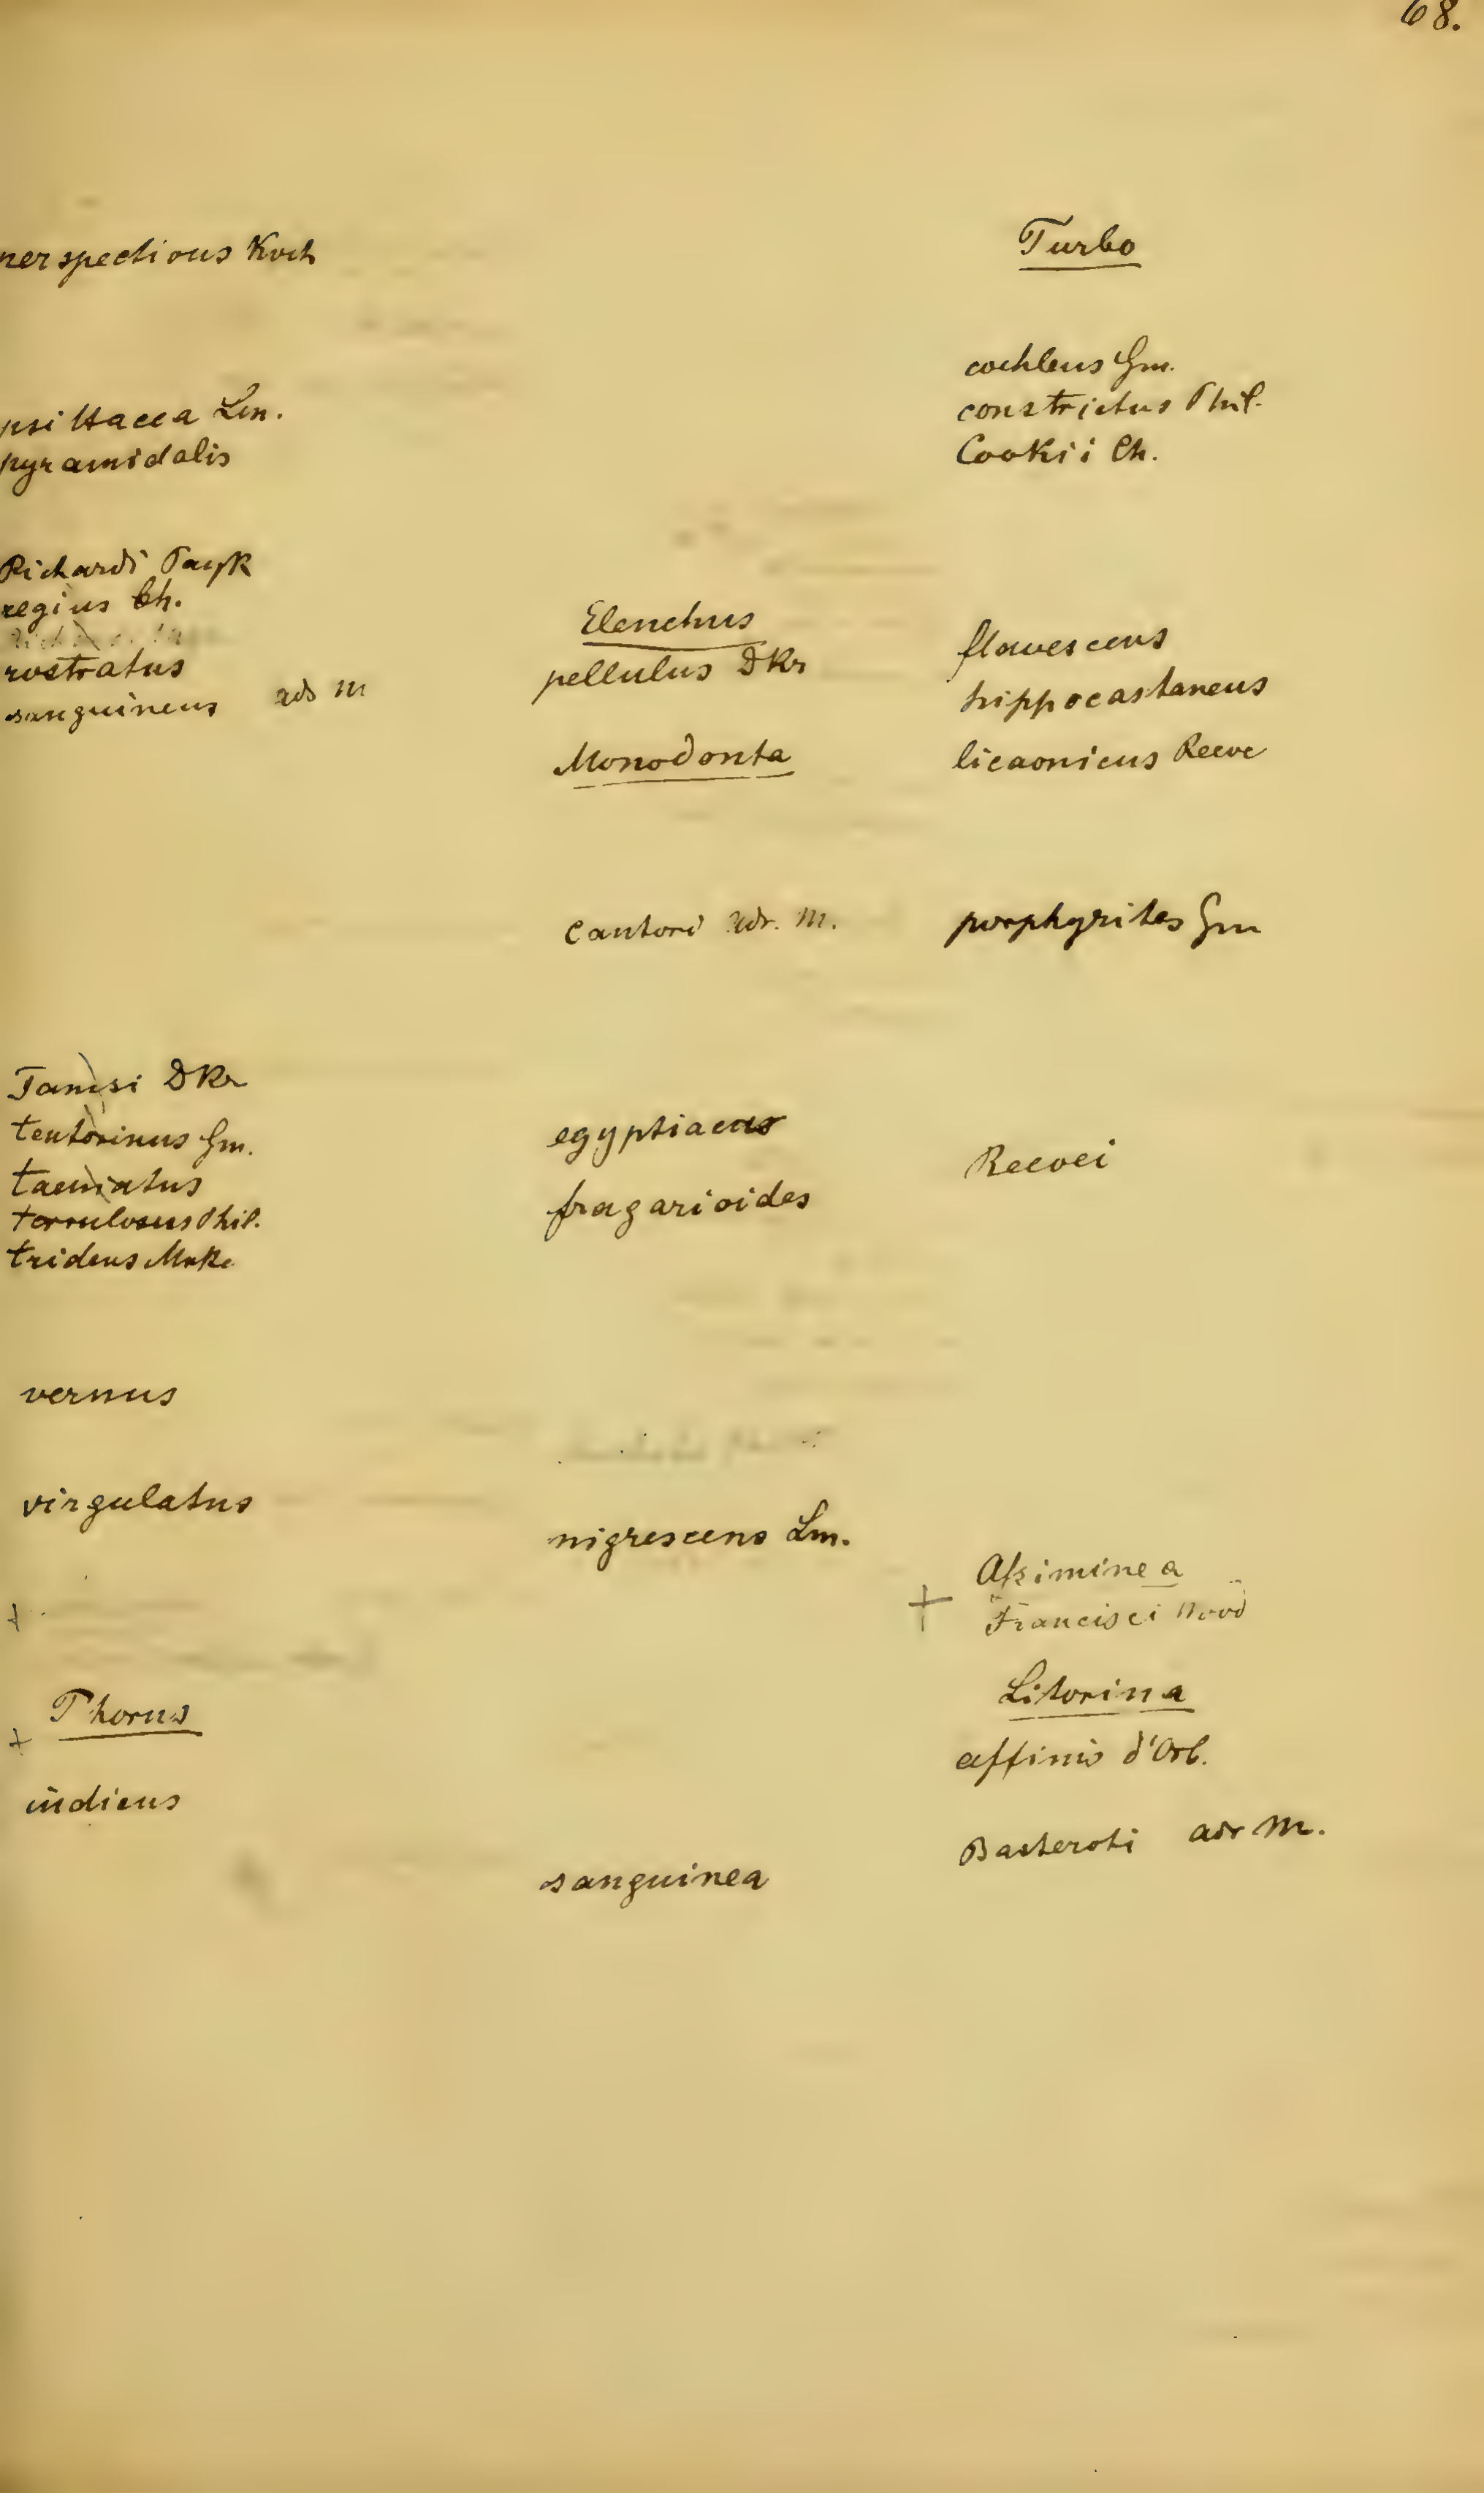 68.
perspectivus Koch
psittacea Lm.
pyramidalis
Richardi Payk
regius Ch.
rostratus
sanguineus ad M
Tamsi DKr
tentorinus Gm.
taeniatus
torrulosus Phil.
tridens Mnke
vernus
virgulatus
+
+ Phorus
indicus
Elenchus
pellulus DKr
Monodonta
Cantori adr. M.
egyptiacus
fragarioides
nigrescens Lm.
sanguinea
Turbo
cochleus Gm.
constrictus Phil.
Cookii Ch.
flavescens
hippocastaneus
licaonicus Reeve
porphyrites Gm
Reevei
+ Assiminea
Francisci Wood
Litorina
affinis d'Orb.
Basteroti adr M.